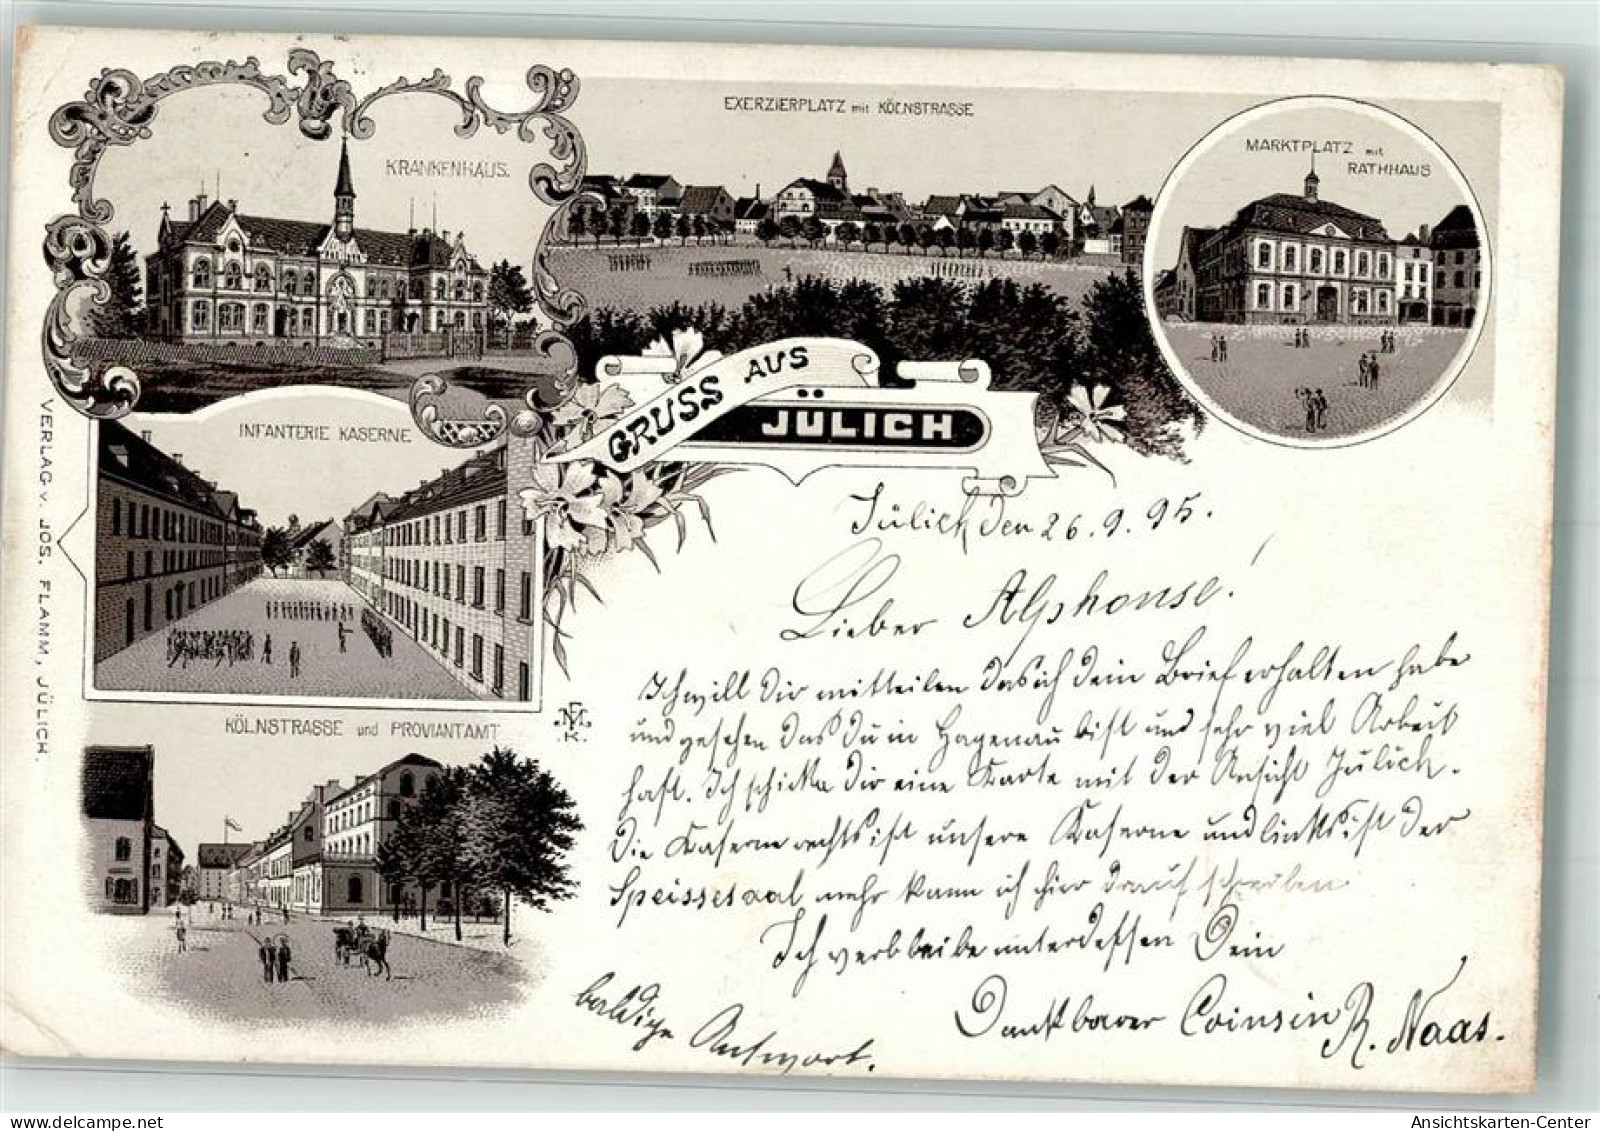 KRANKENHAUS.
EXERZIERPLATZ mit KÖLNSTRASSE
MARKTPLATZ mit
RATHHAUS
GRUSS AUS
JÜLICH
INFANTERIE KASERNE
KÖLNSTRASSE und PROVIANTAMT
VERLAG v. JOS. FLAMM, JÜLICH.
Jülich den 26.9.95.
Lieber Alphonse!
Ich will dir mitteilen das ich dein Brief erhalten habe
und gesehen das du in Hagenau bist und sehr viel Arbeit
hast. Ich schicke dir eine Karte mit der Ansicht Jülich.
Die Kaserne rechts ist unsere Kaserne und links ist der
Speissesaal mehr kann ich hier drauf schreiben
Ich verbleibe unterdessen Dein
Dankbarer Coinsin R. Naas.
baldige Antwort.
Ansichtskarten-Center